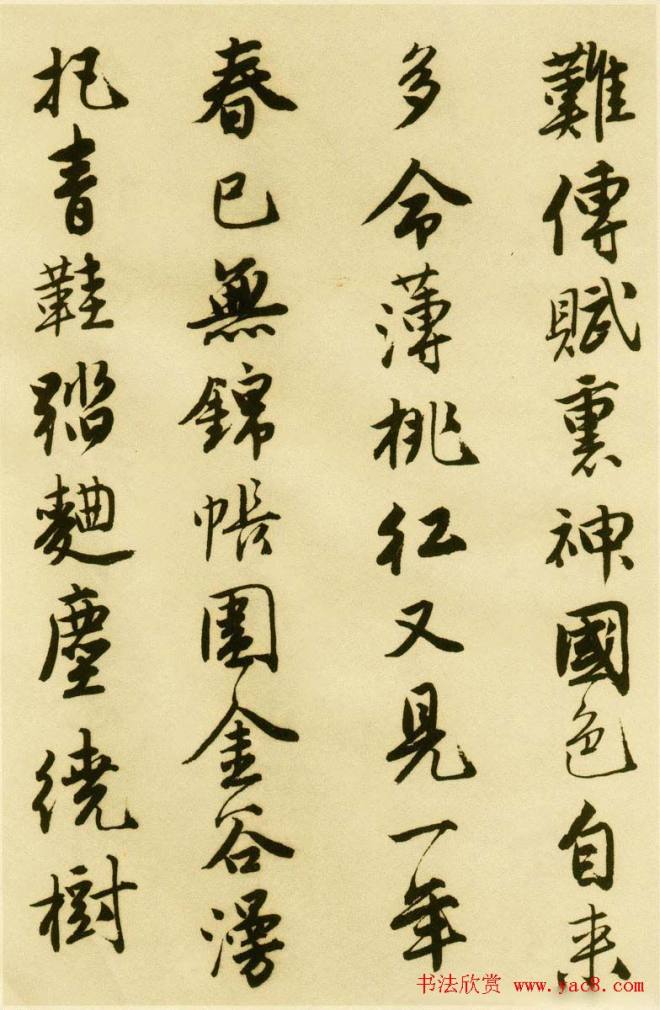 難傳賦裏神國色自來
多命薄桃紅又見一年
春已無錦帳圍金谷漫
把青鞋踏麴塵繞樹
书法欣赏 www.yac8.com